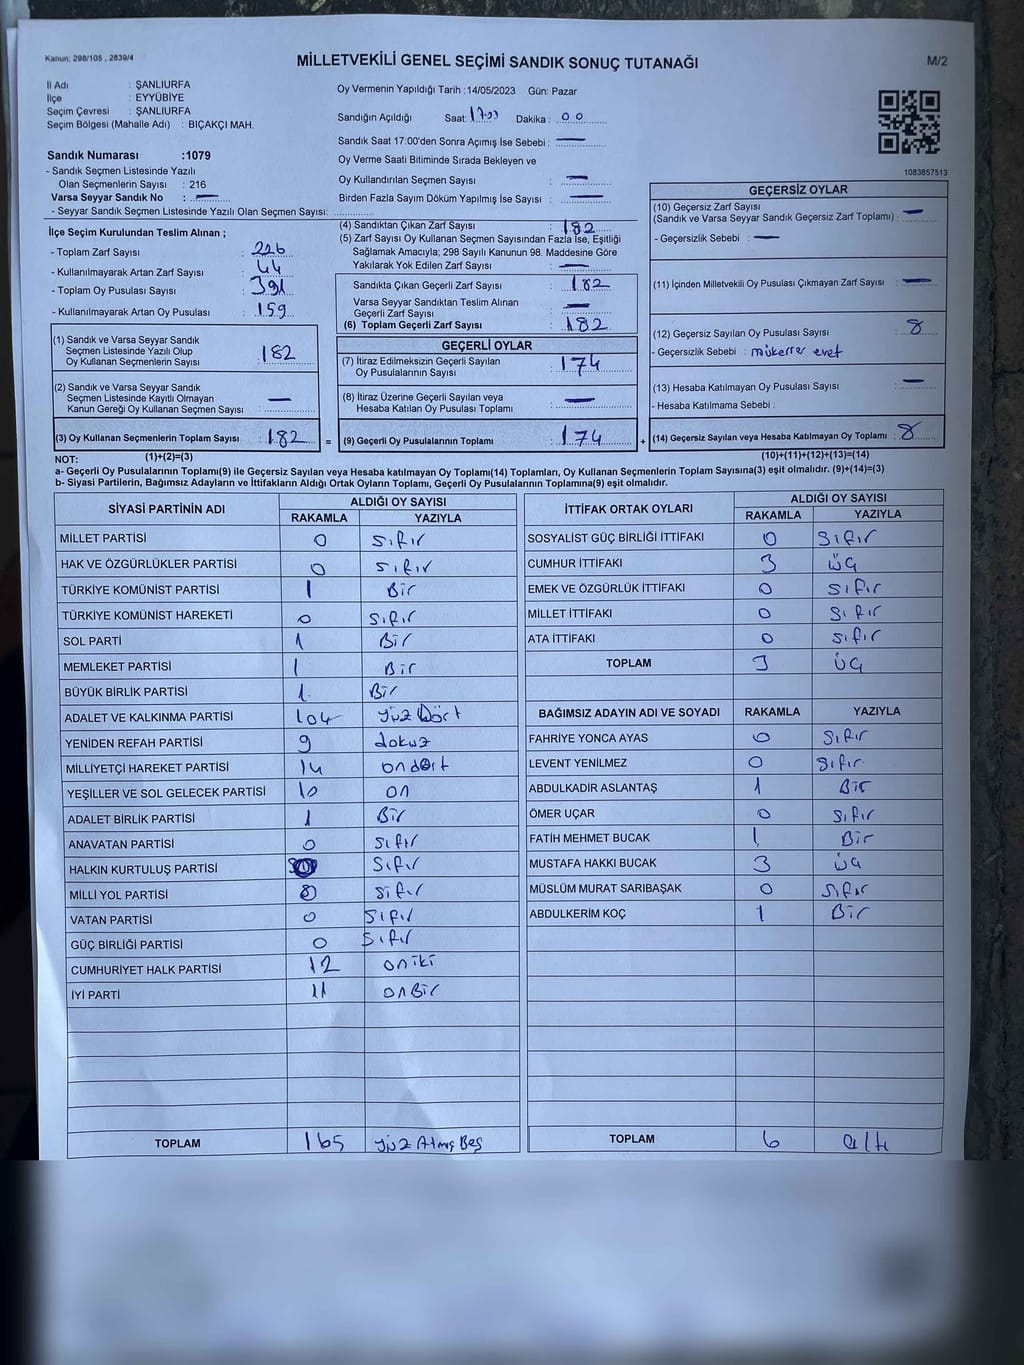 Kanun; 298/105 , 2839/4
MİLLETVEKİLİ GENEL SEÇİMİ SANDIK SONUÇ TUTANAĞI
M/2
İl Adı : ŞANLIURFA
İlçe : EYYÜBİYE
Seçim Çevresi : ŞANLIURFA
Seçim Bölgesi (Mahalle Adı) : BIÇAKÇI MAH.
Sandık Numarası :1079
- Sandık Seçmen Listesinde Yazılı
Olan Seçmenlerin Sayısı : 216
Varsa Seyyar Sandık No : —
- Seyyar Sandık Seçmen Listesinde Yazılı Olan Seçmen Sayısı:
İlçe Seçim Kurulundan Teslim Alınan ;
- Toplam Zarf Sayısı : 226
- Kullanılmayarak Artan Zarf Sayısı : 44
- Toplam Oy Pusulası Sayısı : 391
- Kullanılmayarak Artan Oy Pusulası : 159
(1) Sandık ve Varsa Seyyar Sandık
Seçmen Listesinde Yazılı Olup
Oy Kullanan Seçmenlerin Sayısı : 182
(2) Sandık ve Varsa Seyyar Sandık
Seçmen Listesinde Kayıtlı Olmayan
Kanun Gereği Oy Kullanan Seçmen Sayısı : —
(3) Oy Kullanan Seçmenlerin Toplam Sayısı : 182 =
(1)+(2)=(3)
Oy Vermenin Yapıldığı Tarih :14/05/2023 Gün: Pazar
Sandığın Açıldığı Saat: Dakika : 00
Sandık Saat 17:00'den Sonra Açımış İse Sebebi : —
Oy Verme Saati Bitiminde Sırada Bekleyen ve
Oy Kullandırılan Seçmen Sayısı : —
Birden Fazla Sayım Döküm Yapılmış İse Sayısı : —
(4) Sandıktan Çıkan Zarf Sayısı : 182
(5) Zarf Sayısı Oy Kullanan Seçmen Sayısından Fazla İse, Eşitliği
Sağlamak Amacıyla; 298 Sayılı Kanunun 98. Maddesine Göre
Yakılarak Yok Edilen Zarf Sayısı : —
Sandıkta Çıkan Geçerli Zarf Sayısı : 182
Varsa Seyyar Sandıktan Teslim Alınan
Geçerli Zarf Sayısı : —
(6) Toplam Geçerli Zarf Sayısı : 182
GEÇERLİ OYLAR
(7) İtiraz Edilmeksizin Geçerli Sayılan
Oy Pusulalarının Sayısı : 174
(8) İtiraz Üzerine Geçerli Sayılan veya
Hesaba Katılan Oy Pusulası Toplamı : —
(9) Geçerli Oy Pusulalarının Toplamı : 174 +
1083657513
GEÇERSİZ OYLAR
(10) Geçersiz Zarf Sayısı
(Sandık ve Varsa Seyyar Sandık Geçersiz Zarf Toplamı) : —
- Geçersizlik Sebebi : —
(11) İçinden Milletvekili Oy Pusulası Çıkmayan Zarf Sayısı : —
(12) Geçersiz Sayılan Oy Pusulası Sayısı : 8
- Geçersizlik Sebebi : mükerrer evet
(13) Hesaba Katılmayan Oy Pusulası Sayısı : —
- Hesaba Katılmama Sebebi :
(14) Geçersiz Sayılan veya Hesaba Katılmayan Oy Toplamı : 8
(10)+(11)+(12)+(13)=(14)
NOT:
a- Geçerli Oy Pusulalarının Toplamı(9) ile Geçersiz Sayılan veya Hesaba katılmayan Oy Toplamı(14) Toplamları, Oy Kullanan Seçmenlerin Toplam Sayısına(3) eşit olmalıdır. (9)+(14)=(3)
b- Siyasi Partilerin, Bağımsız Adayların ve İttifakların Aldığı Ortak Oyların Toplamı, Geçerli Oy Pusulalarının Toplamına(9) eşit olmalıdır.
SİYASİ PARTİNİN ADI ALDIĞI OY SAYISI
RAKAMLA YAZIYLA
MİLLET PARTİSİ 0 sıfır
HAK VE ÖZGÜRLÜKLER PARTİSİ 0 sıfır
TÜRKİYE KOMÜNİST PARTİSİ 1 Bir
TÜRKİYE KOMÜNİST HAREKETİ 0 sıfır
SOL PARTİ 1 Bir
MEMLEKET PARTİSİ 1 Bir
BÜYÜK BİRLİK PARTİSİ 1 Bir
ADALET VE KALKINMA PARTİSİ 104 yüz Dört
YENİDEN REFAH PARTİSİ 9 dokuz
MİLLİYETÇİ HAREKET PARTİSİ 14 ondört
YEŞİLLER VE SOL GELECEK PARTİSİ 10 on
ADALET BİRLİK PARTİSİ 1 Bir
ANAVATAN PARTİSİ 0 sıfır
HALKIN KURTULUŞ PARTİSİ sıfır
MİLLİ YOL PARTİSİ sıfır
VATAN PARTİSİ 0 sıfır
GÜÇ BİRLİĞİ PARTİSİ 0 sıfır
CUMHURİYET HALK PARTİSİ 12 oniki
İYİ PARTİ 11 onBir
TOPLAM 165 yüz Atmış Beş
İTTİFAK ORTAK OYLARI ALDIĞI OY SAYISI
RAKAMLA YAZIYLA
SOSYALİST GÜÇ BİRLİĞİ İTTİFAKI 0 sıfır
CUMHUR İTTİFAKI 3 üç
EMEK VE ÖZGÜRLÜK İTTİFAKI 0 sıfır
MİLLET İTTİFAKI 0 sıfır
ATA İTTİFAKI 0 sıfır
TOPLAM 3 üç
BAĞIMSIZ ADAYIN ADI VE SOYADI RAKAMLA YAZIYLA
FAHRİYE YONCA AYAS 0 sıfır
LEVENT YENİLMEZ 0 sıfır
ABDULKADİR ASLANTAŞ 1 Bir
ÖMER UÇAR 0 sıfır
FATİH MEHMET BUCAK 1 Bir
MUSTAFA HAKKI BUCAK 3 üç
MÜSLÜM MURAT SARIBAŞAK 0 sıfır
ABDULKERİM KOÇ 1 Bir
TOPLAM 6 altı